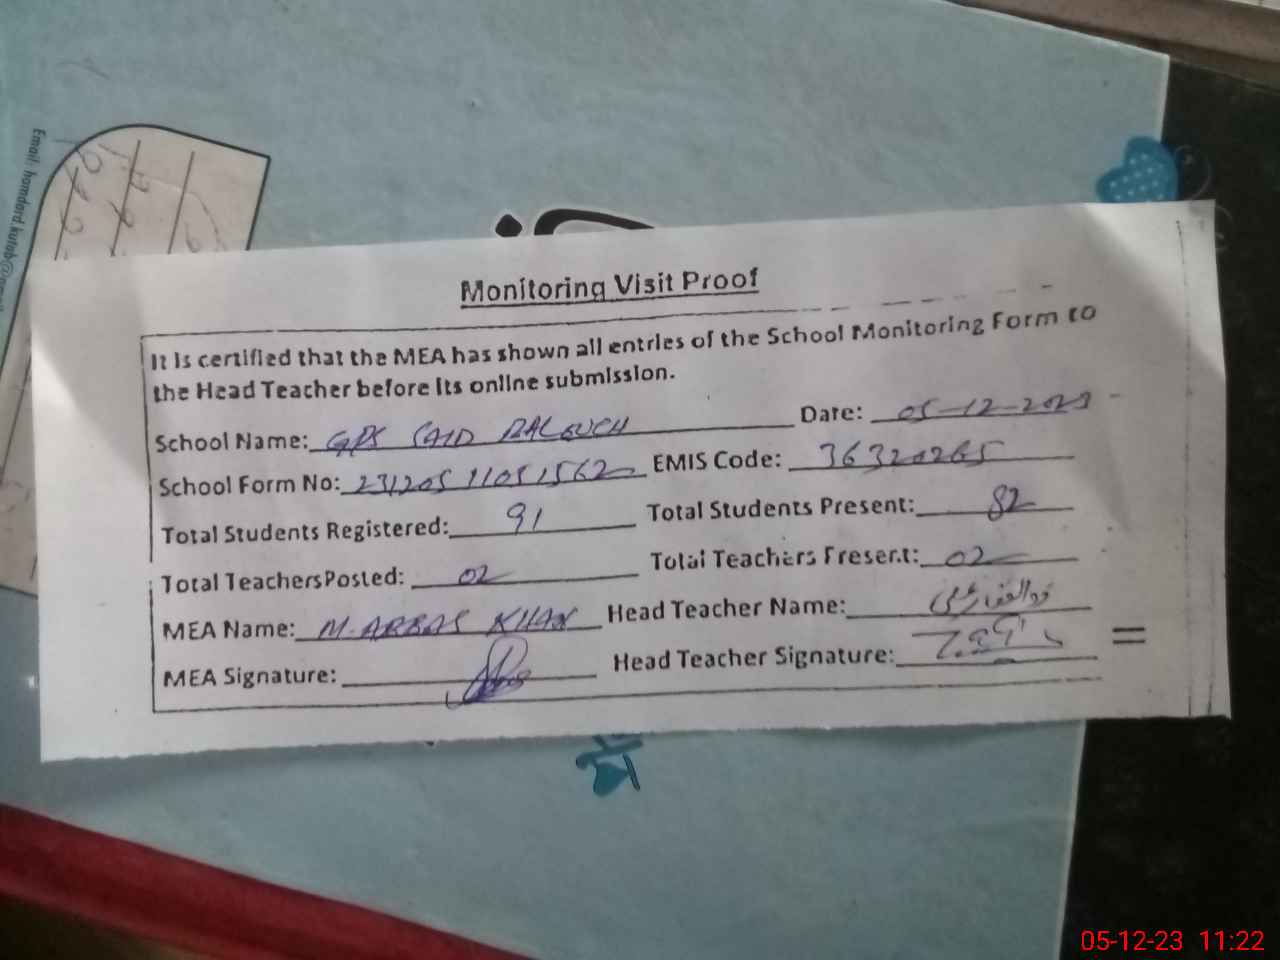 Email: hamdard.kutab@
Monitoring Visit Proof
It is certified that the MEA has shown all entries of the School Monitoring Form to
the Head Teacher before its online submission.
School Name: GPS SAID BALOUCH Date: 05-12-2023
School Form No: 23120511051562 EMIS Code: 36320265
Total Students Registered: 91 Total Students Present: 82
Total Teachers Posted: 02 Total Teachers Present: 02
MEA Name: M. ABBAS KHAN Head Teacher Name: ذوالفقار علی
MEA Signature: Head Teacher Signature:
05-12-23 11:22